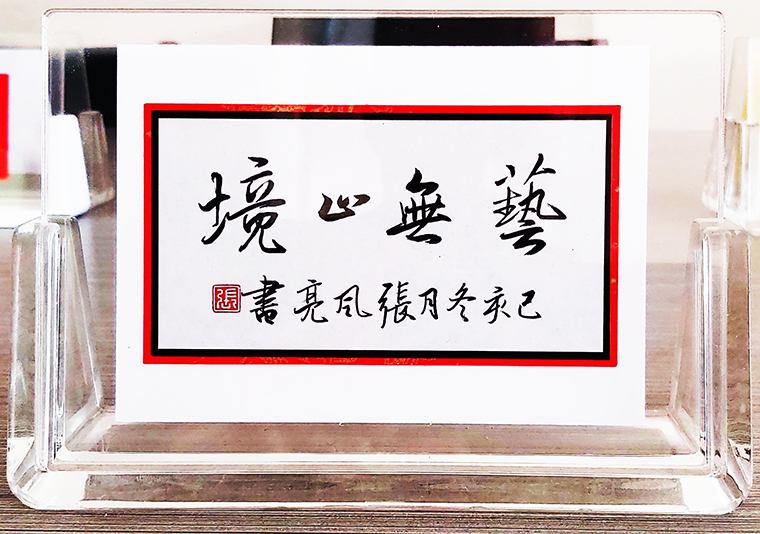 藝無止境
己亥冬月張风亮書
張